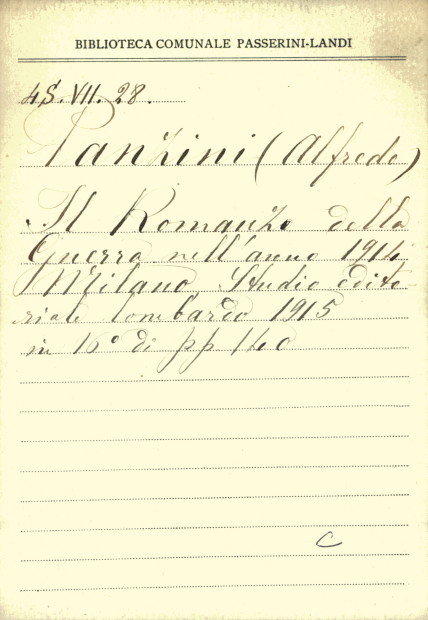 BIBLIOTECA COMUNALE PASSERINI-LANDI
4S. VII. 28.
Panzini (Alfredo)
Il Romanzo della
Guerra nell'anno 1914
Milano Studio edito
riale lombardo 1915
in 16° di pp 140
C